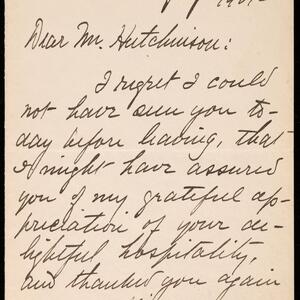 1901-
Dear Mr. Hutchinson:
I regret I could
not have seen you to-
day before leaving, that
I might have assured
you of my grateful ap-
preciation of your de-
lightful hospitality,
and thanked you again